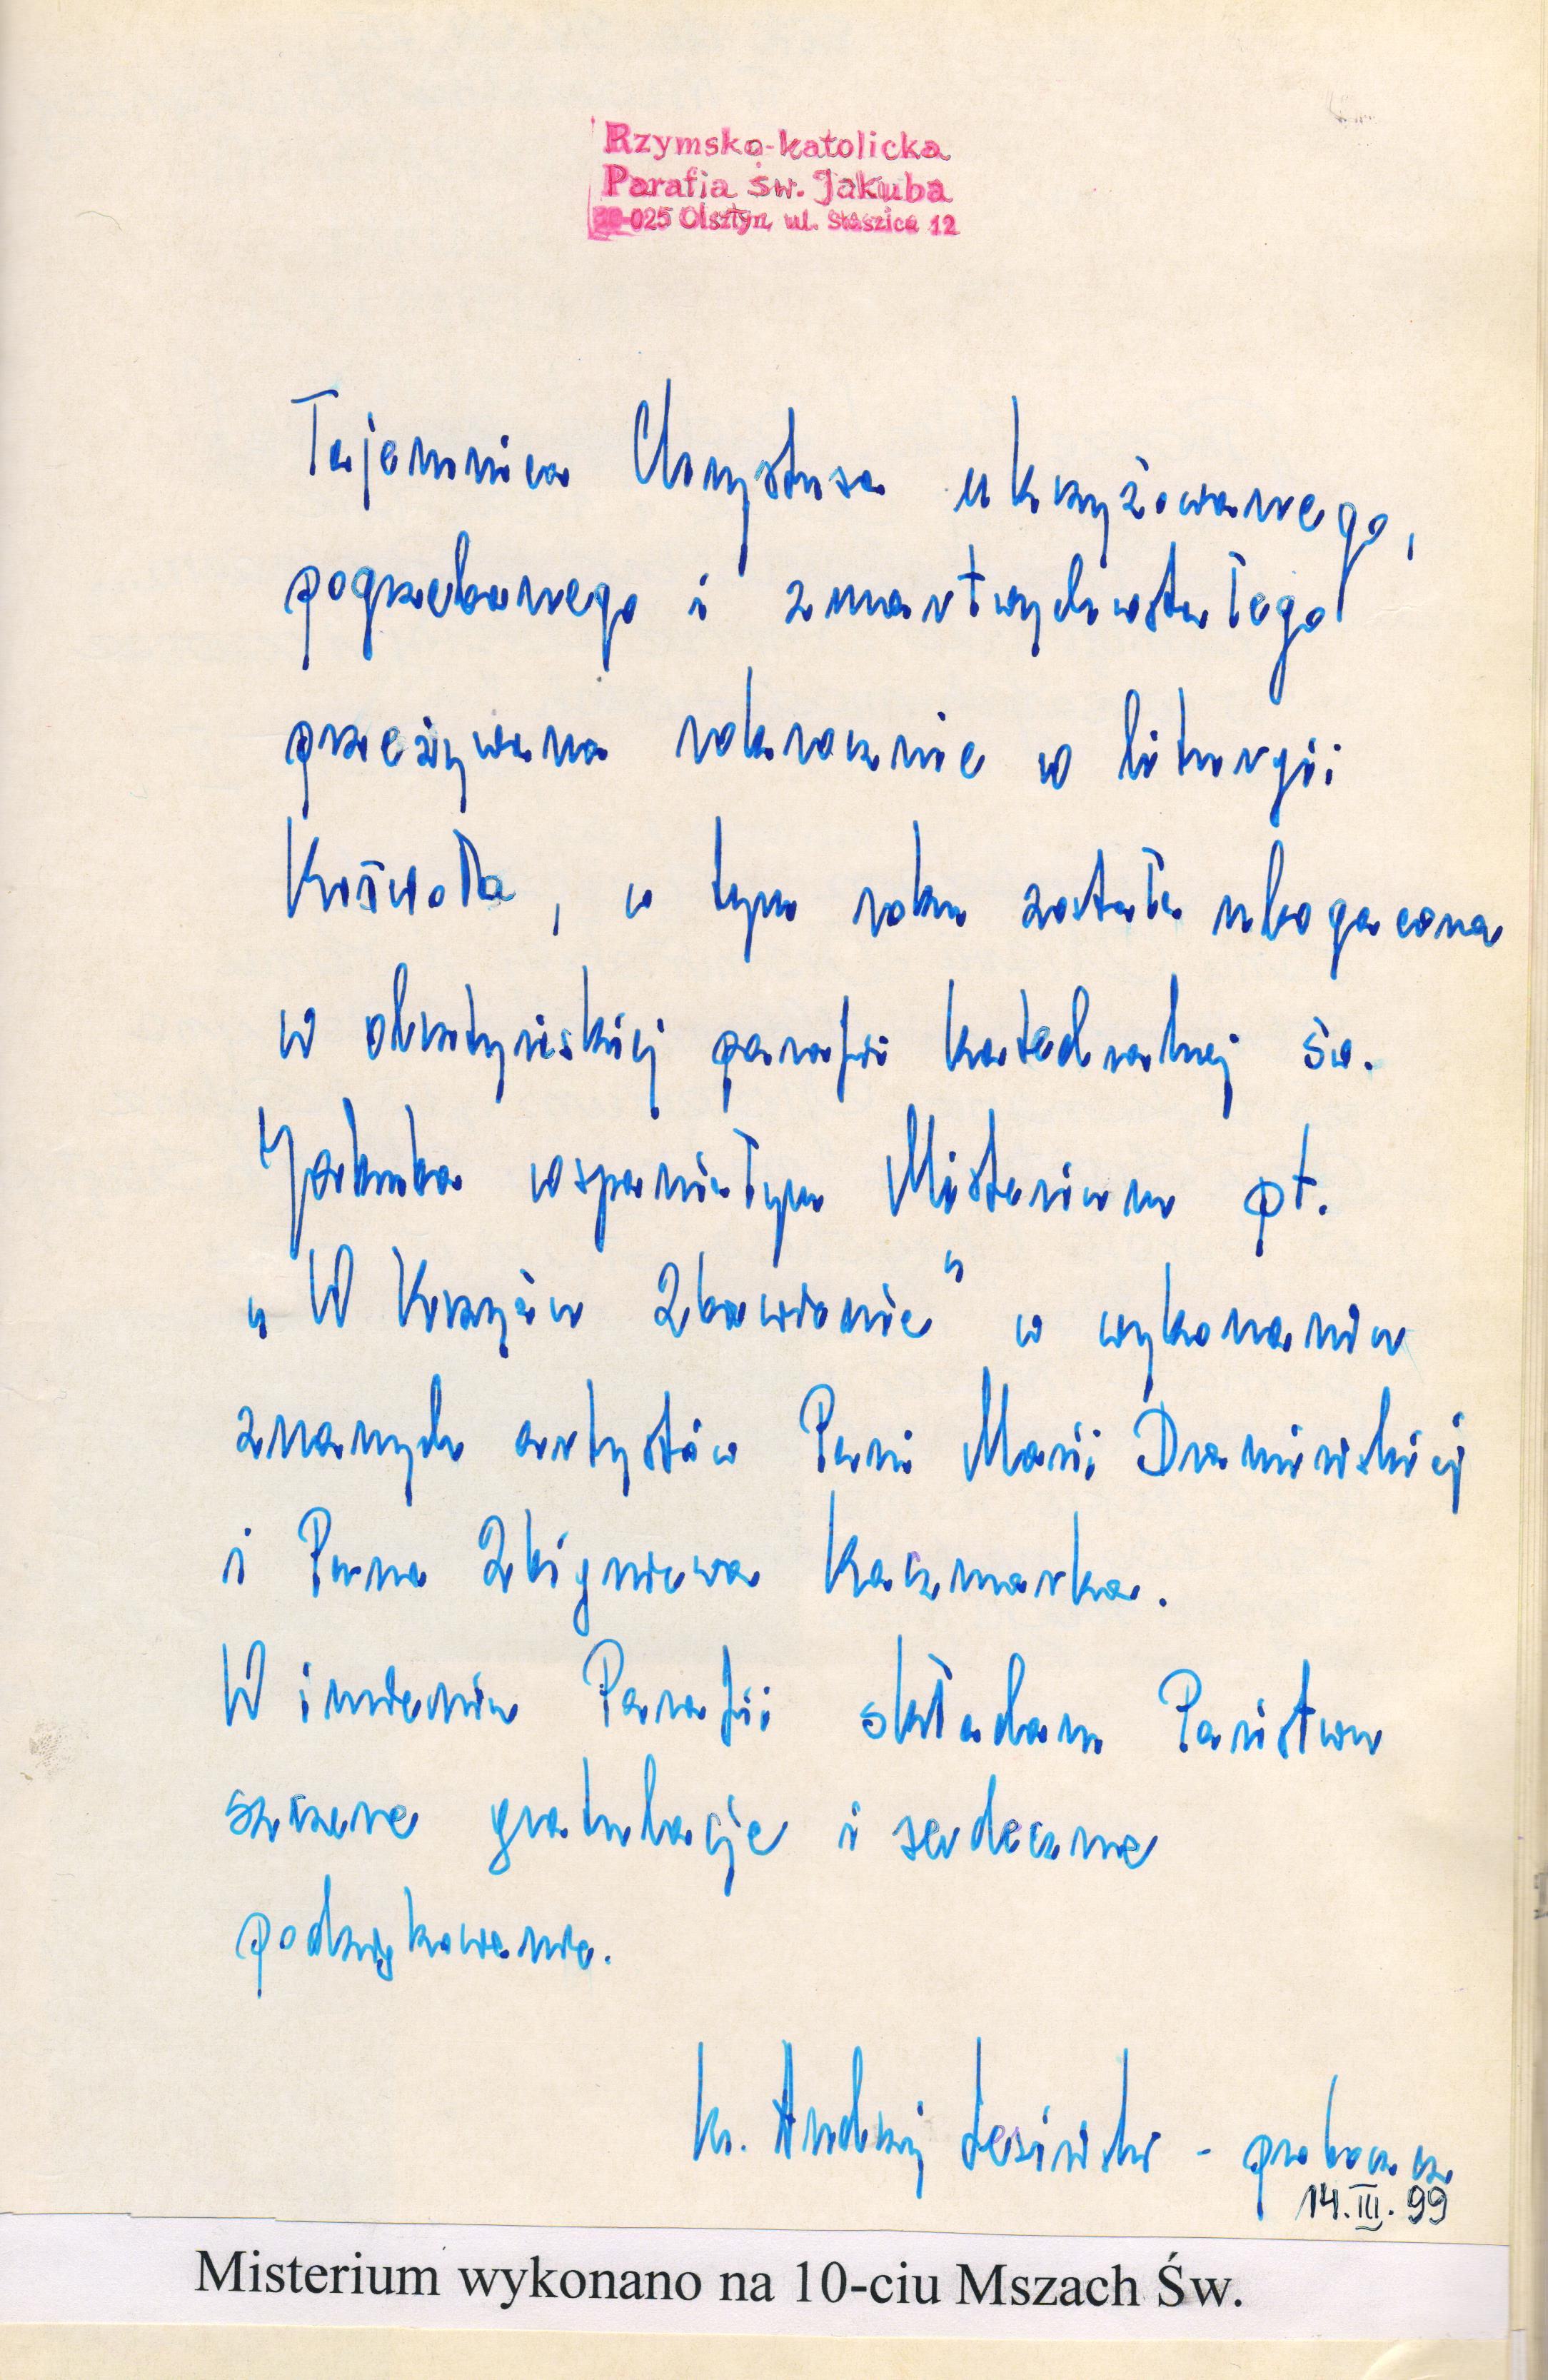 Rzymsko-katolicka
Parafia św. Jakuba
10-025 Olsztyn, ul. Staszica 12
Tajemnica Chrystusa ukrzyżowanego,
pogrzebanego i zmartwychwstałego
przeżywana rokrocznie w liturgii
Kościoła, w tym roku została ubogacona
w olsztyńskiej parafii katedralnej św.
Jakuba wspaniałym Misterium pt.
„W Krzyżu Zbawienie" w wykonaniu
znanych artystów Pani Marii
i Pana Zbigniewa Kaczmarka.
W imieniu Parafii składam Państwu
szczere gratulacje i serdeczne
podziękowanie.
ks. Andrzej Lesiński - proboszcz
14.III.99
Misterium wykonano na 10-ciu Mszach Św.